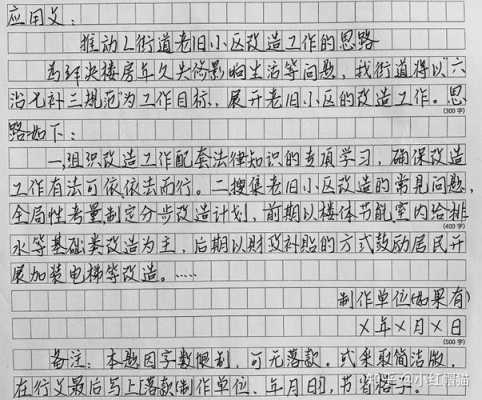 应用文：
推动L街道老旧小区改造工作的思路
为解决楼房年久失修影响生活等问题，我街道将以“六
治七补三规范”为工作目标，展开老旧小区的改造工作。思
(300字)
路如下：
一、组织改造工作配套法律知识的专项学习，确保改造
工作有法可依、依法而行。二搜集老旧小区改造的常见问题，
全局性考量，制定分步改造计划，前期以楼体节能、室内给排
(400字)
水等基础类改造为主，后期以财政补贴的方式鼓励居民开
展加装电梯等改造。……
制作单位(如果有)
X年X月X日
(500字)
备注：本题因字数限制，可无落款。或采取简洁版，
在行文最后写上[落款(制作单位、年月日]，节省格子。
知乎 @小红猫